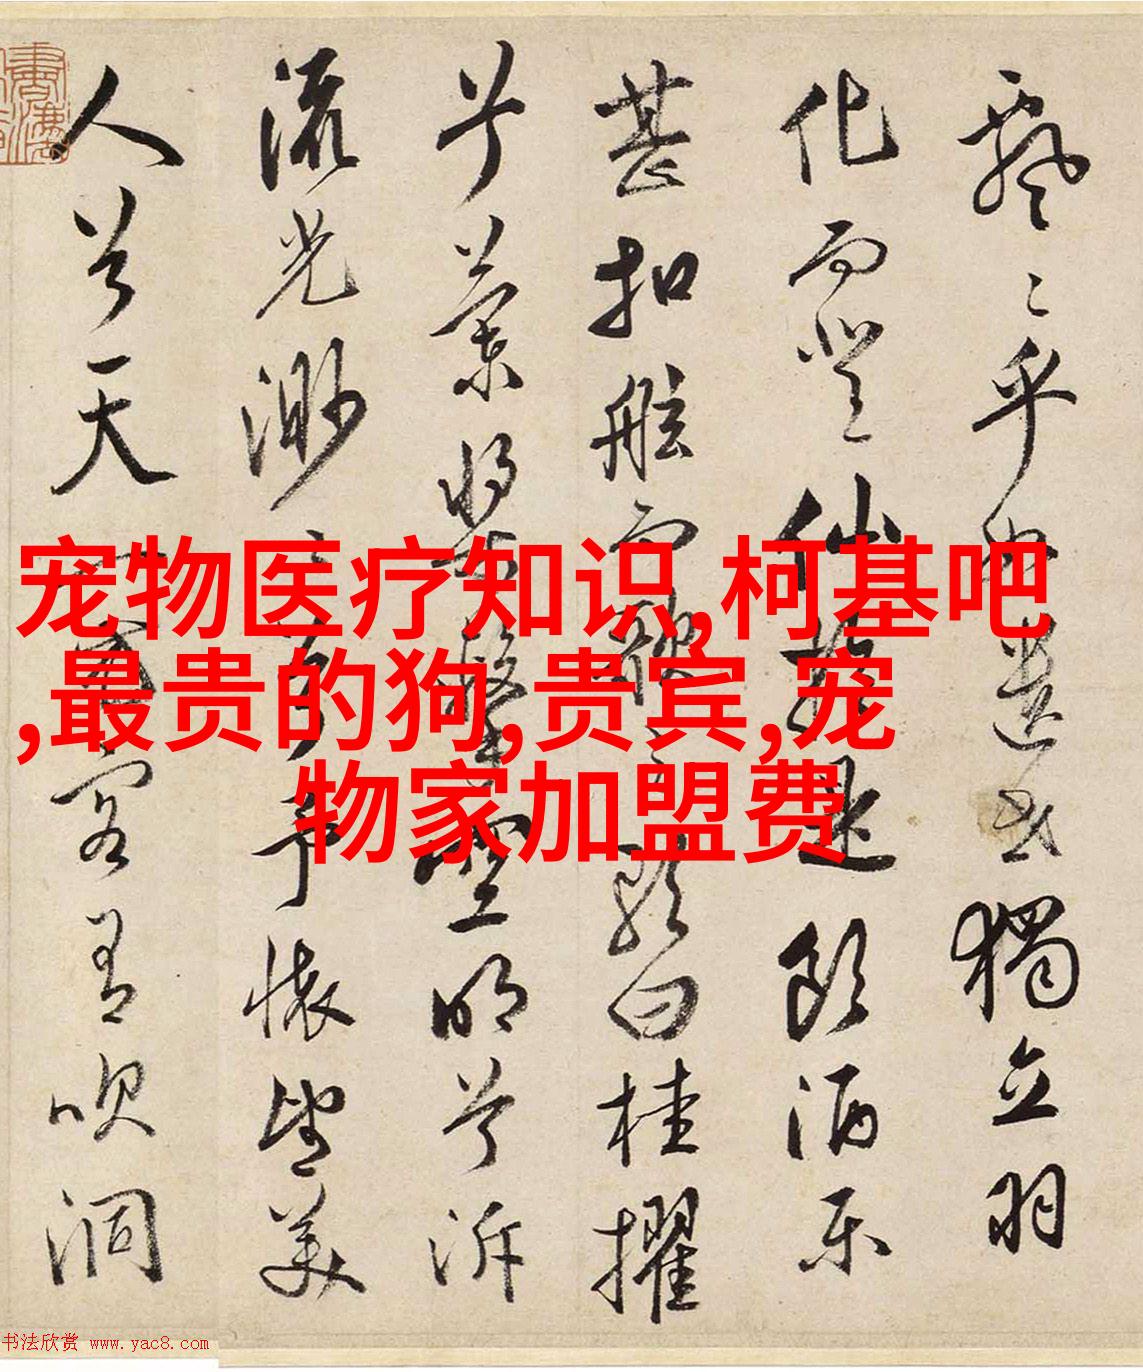 飄〻乎如遺世獨立羽
化而登仙於是飲酒樂
甚扣舷而歌之歌曰桂擢
兮蘭槳兮擊空明兮泝
流光渺〻兮予懷望美
人兮天一方客有吹洞
宠物医疗知识,柯基吧
,最贵的狗,贵宾,宠
物家加盟费
书法欣赏 www.yac8.com